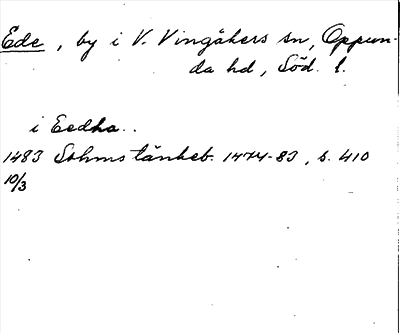 Ede, by i V. Vingåkers sn, Oppun-
da hd, Söd. l.
i Eedha..
1483 Sthms tänkeb. 1474-83, s. 410
10/3